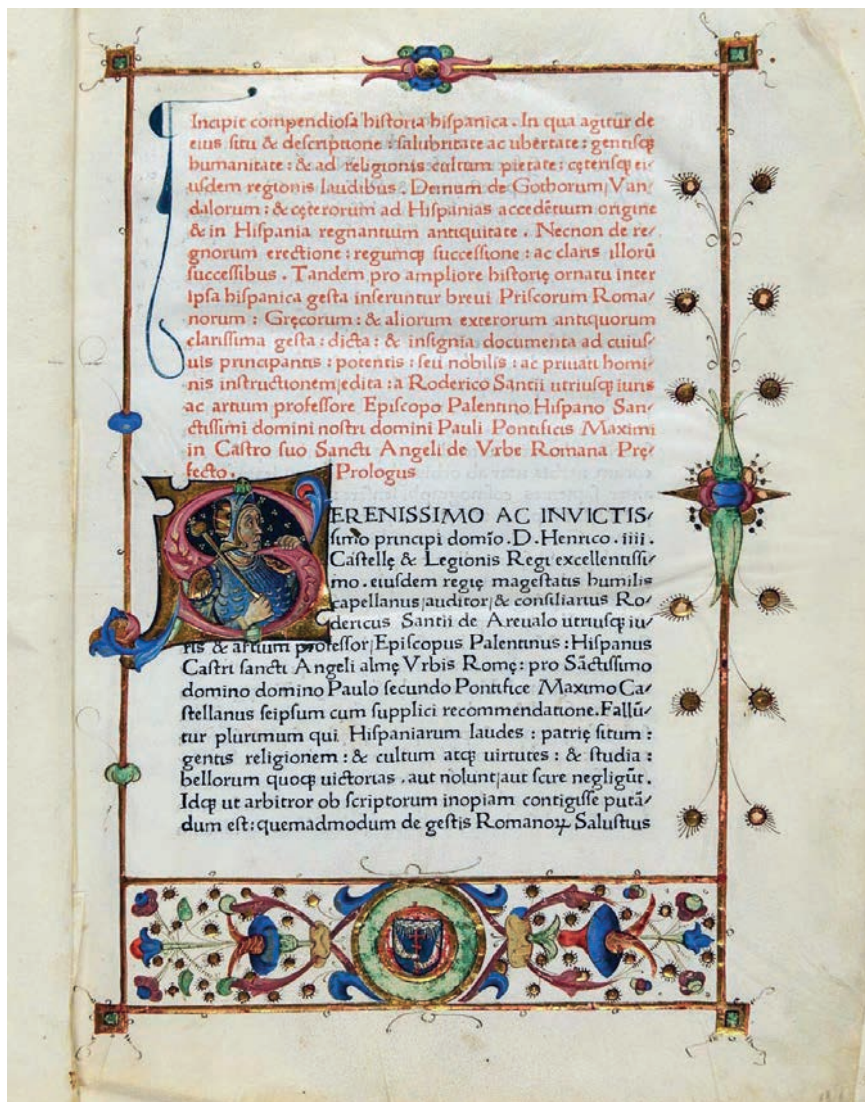 Incipit compendiosa historia hispanica. In qua agitur de
eius situ & descriptione : salubritate ac ubertate : gentisqꝫ
humanitate : & ad religionis cultum pietate : cęterisqꝫ ei⸗
usdem regionis laudibus. Demum de Gothorum| Van⸗
dalorum : & cęterorum ad Hispanias accedētium origine
& in Hispania regnantium antiquitate. Necnon de re⸗
gnorum erectione : regumqꝫ successione : ac claris illorū
successibus. Tandem pro ampliore historię ornatu inter
ipsa hispanica gesta inseruntur brevi Priscorum Roma⸗
norum : Gręcorum : & aliorum exterorum antiquorum
clarissima gesta : dicta : & insignia documenta ad cuius⸗
uis principantis : potentis : seu nobilis : ac priuati homi⸗
nis instructionem| edita : a Roderico Santii utriusqꝫ iuris
ac artium professore Episcopo Palentino Hispano San⸗
ctissimi domini nostri domini Pauli Pontificis Maximi
in Castro suo Sancti Angeli de Vrbe Romana Prę⸗
fecto. Prologus
SERENISSIMO AC INVICTIS⸗
simo principi domīo. D. Henrico. iiii.
Castellę & Legionis Regi excellentissi⸗
mo. eiusdem regię magestatis humilis
capellanus| auditor| & consiliarius Ro⸗
dericus Santii de Areualo utriusqꝫ iu⸗
ris & artium professor| Episcopus Palentinus : Hispanus
Castri sancti Angeli almę Vrbis Romę : pro Sāctissimo
domino domino Paulo secundo Pontifice Maximo Ca⸗
stellanus seipsum cum supplici recommendatione. Fallū⸗
tur plurimum qui Hispaniarum laudes : patrię situm :
gentis religionem : & cultum atqꝫ uirtutes : & studia :
bellorum quoqꝫ uictorias. aut nolunt| aut scire negligūt.
Idqꝫ ut arbitror ob scriptorum inopiam contigisse putā⸗
dum est : quemadmodum de gestis Romanoꝝ Salustius